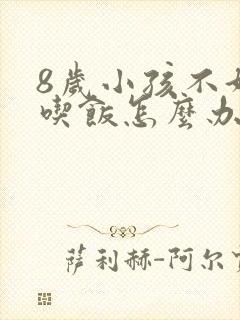 8歲小孩不好
喫飯怎麼办
萨利赫-阿尔